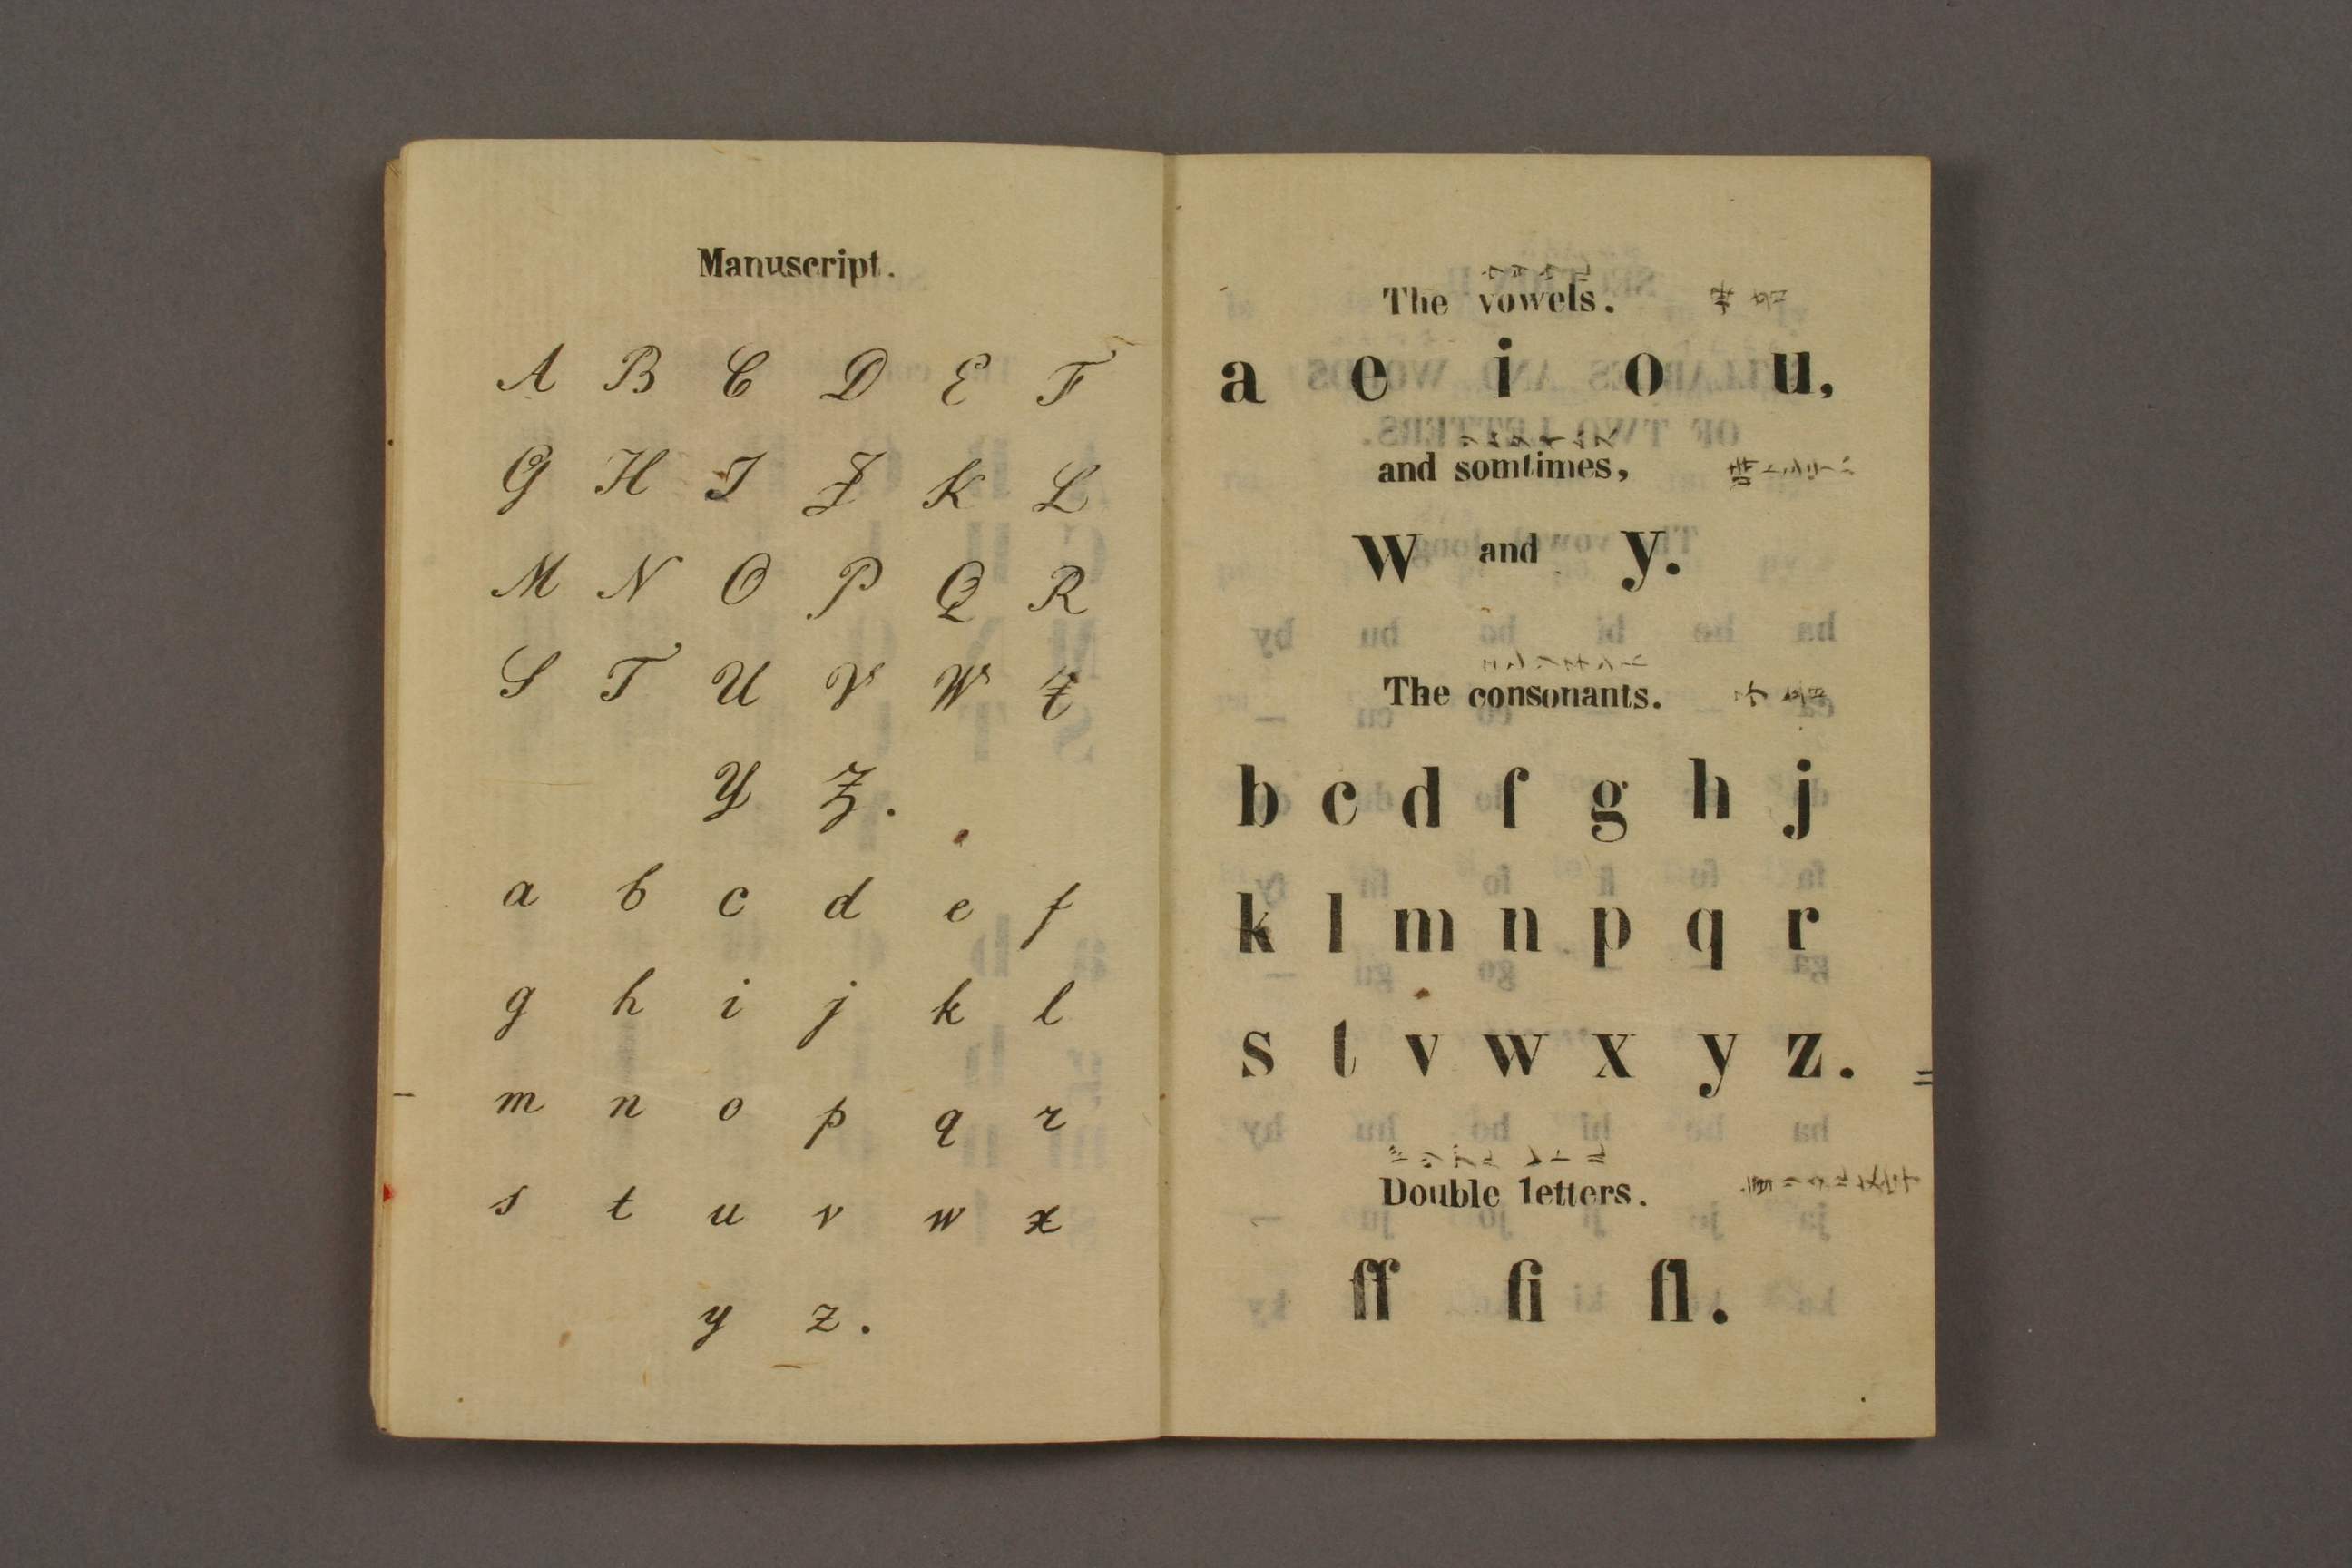 Manuscript.
A B C D E F
G H I J K L
M N O P Q R
S T U V W X
Y Z.
a b c d e f
g h i j k l
m n o p q r
s t u v w x
y z.
The vowels.
a e i o u,
and somtimes,
w and y.
The consonants.
b c d f g h j
k l m n p q r
s t v w x y z.
Double letters.
ff fi fl.